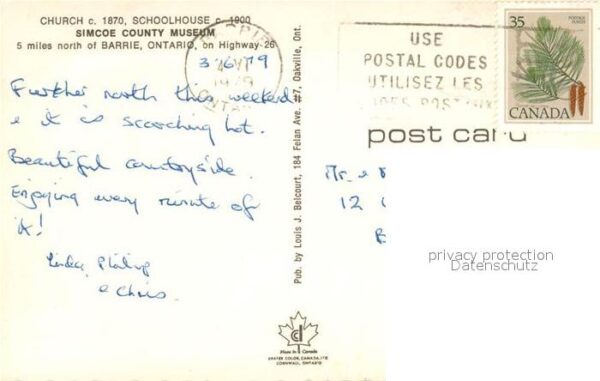 CHURCH c. 1870, SCHOOLHOUSE c. 1900
SIMCOE COUNTY MUSEUM
5 miles north of BARRIE, ONTARIO, on Highway 26
Further north this weekend
& it is scorching hot.
Beautiful countryside.
Enjoying every minute of
it!
Linda, Philip
& Chris.
Pub. by Louis J. Belcourt, 184 Felan Ave. #7, Oakville, Ont.
Made in Canada
CORNWALL, ONTARIO
1979
USE
POSTAL CODES
UTILISEZ LES
35
POSTES POSTAGE
CANADA
post card
Mr. &
12
privacy protection
Datenschutz